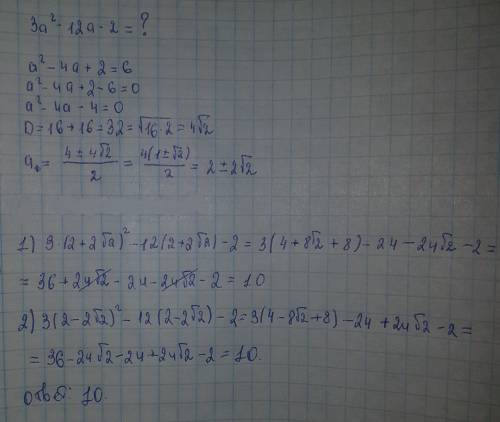 3a² - 12a - 2 = ?
a² - 4a + 2 = 6
a² - 4a + 2 - 6 = 0
a² - 4a - 4 = 0
D = 16 + 16 = 32 = √16·2 = 4√2
a = (4 ± 4√2)/2 = 4(1 ± √2)/2 = 2 ± 2√2
1) 3·(2 + 2√2)² - 12(2 + 2√2) - 2 = 3(4 + 8√2 + 8) - 24 - 24√2 - 2 =
= 36 + 24√2 - 24 - 24√2 - 2 = 10
2) 3(2 - 2√2)² - 12(2 - 2√2) - 2 = 3(4 - 8√2 + 8) - 24 + 24√2 - 2 =
= 36 - 24√2 - 24 + 24√2 - 2 = 10.
ответ: 10.